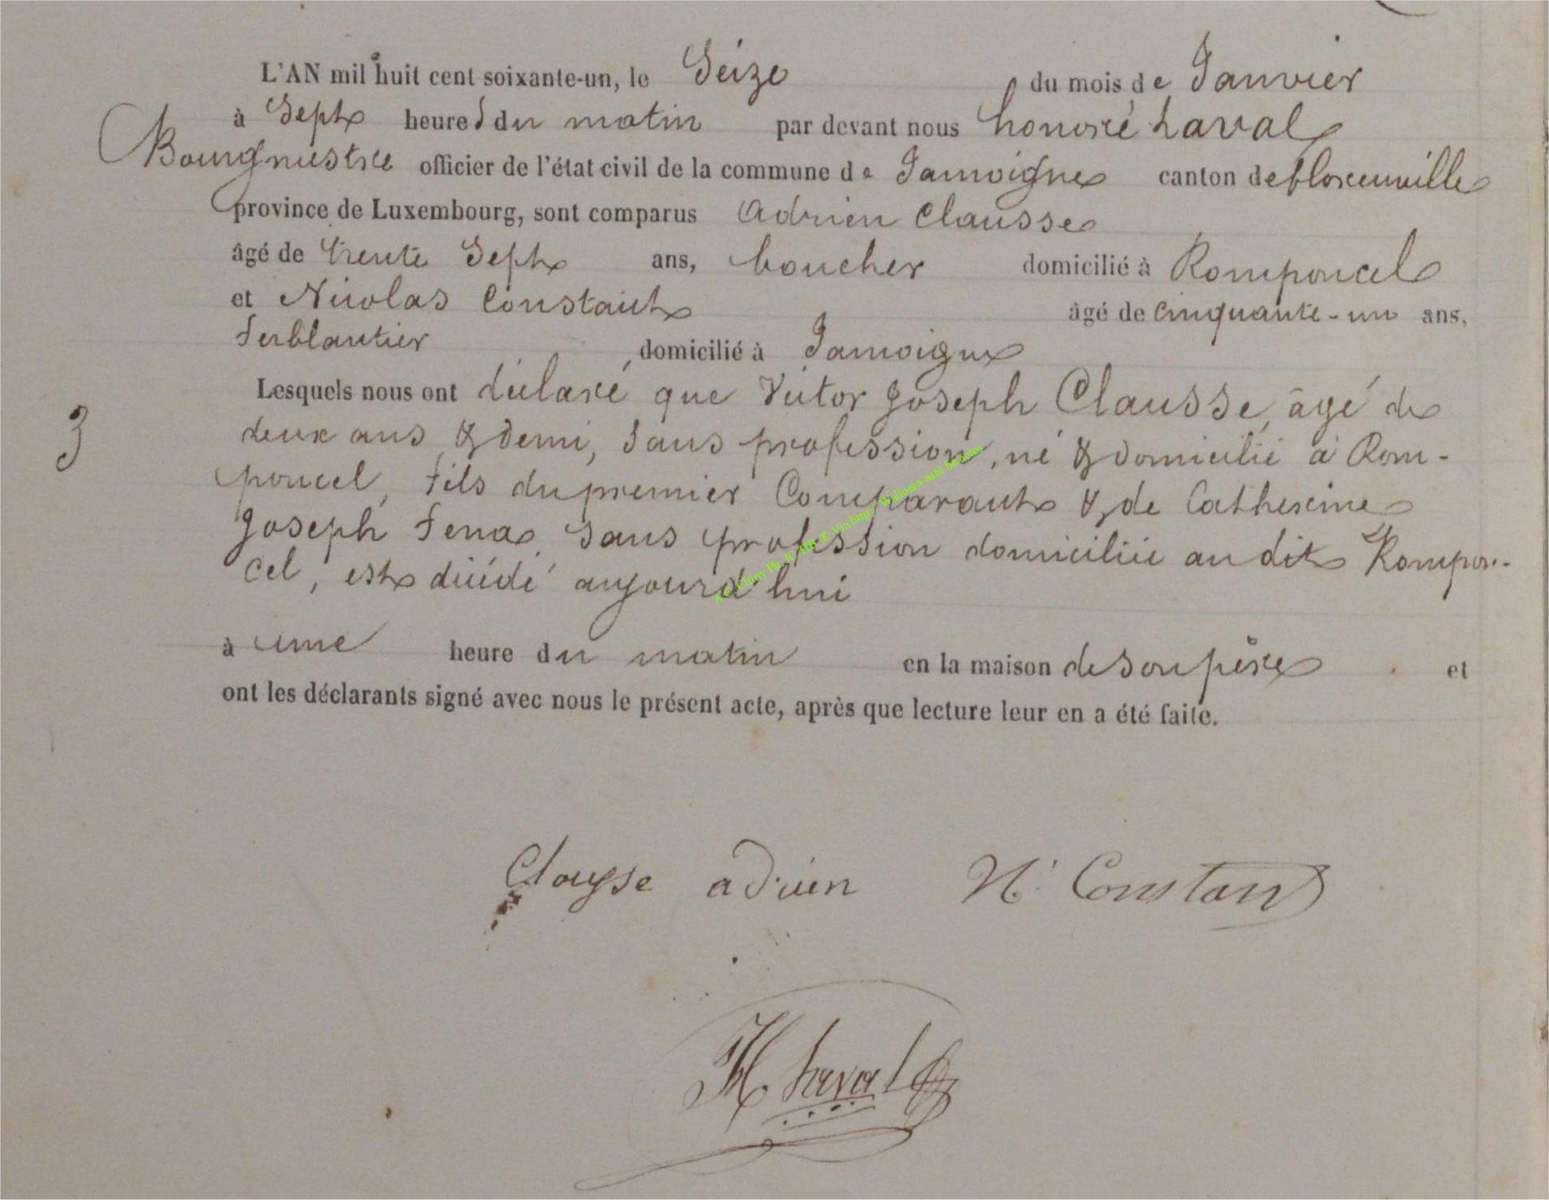 L'AN mil huit cent soixante-un, le Seize du mois de Janvier
à Sept heures du matin par devant nous honoré Laval
Bourgmestre officier de l'état civil de la commune de Jamoigne canton de florenville
province de Luxembourg, sont comparus Adrien Clausse
âgé de trente Sept ans, boucher domicilié à Romponcel
et Nicolas Constant âgé de cinquante-un ans,
ferblantier domicilié à Jamoigne
Lesquels nous ont déclaré que Victor Joseph Clausse, âgé de
3
deux ans & demi, sans profession, né & domicilié à Rom-
poncel, fils du premier Comparant & de Catherine
Joseph Fena, sans profession domiciliée au dit Rompon-
cel, est décédé aujourd'hui
à une heure du matin en la maison de son père et
ont les déclarants signé avec nous le présent acte, après que lecture leur en a été faite.
Clausse adrien N. Constant
H Laval